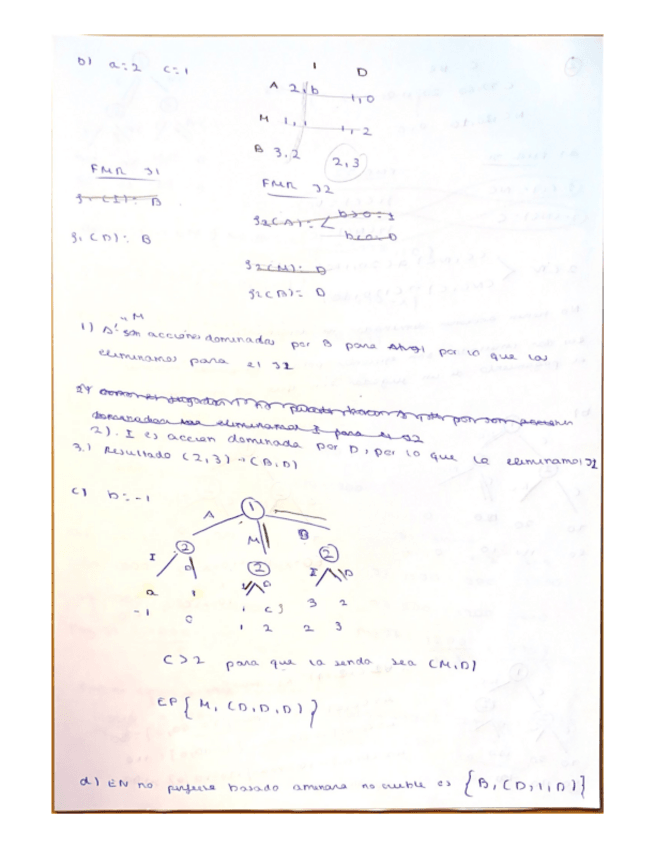 b) a=2 c=1
I D
A 2,b 1,0
M 1,1 1,2
B 3,2 2,3
FMR J1
FMR J2
s1(I): B
s2(A): b>0: I
b<0: D
s1(D): B
s2(M): D
s2(B): D
1) A y M son acciones dominadas por B para el J1 por lo que las
eliminamos para el J2
eliminamos I para el J2
2). I es accion dominada por D, por lo que la eliminamos J2
3.) Resultado (2,3) → (B,D)
c) b=-1
1
A M B
2 2 2
I D D I D
a 1 1 c 3 2
-1 0 1 2 2 3
c>2 para que la senda sea (M,D)
EP{M, (D,D,D)}
d) EN no perfecto basado amenaza no creible es {B, (D,I,D)}